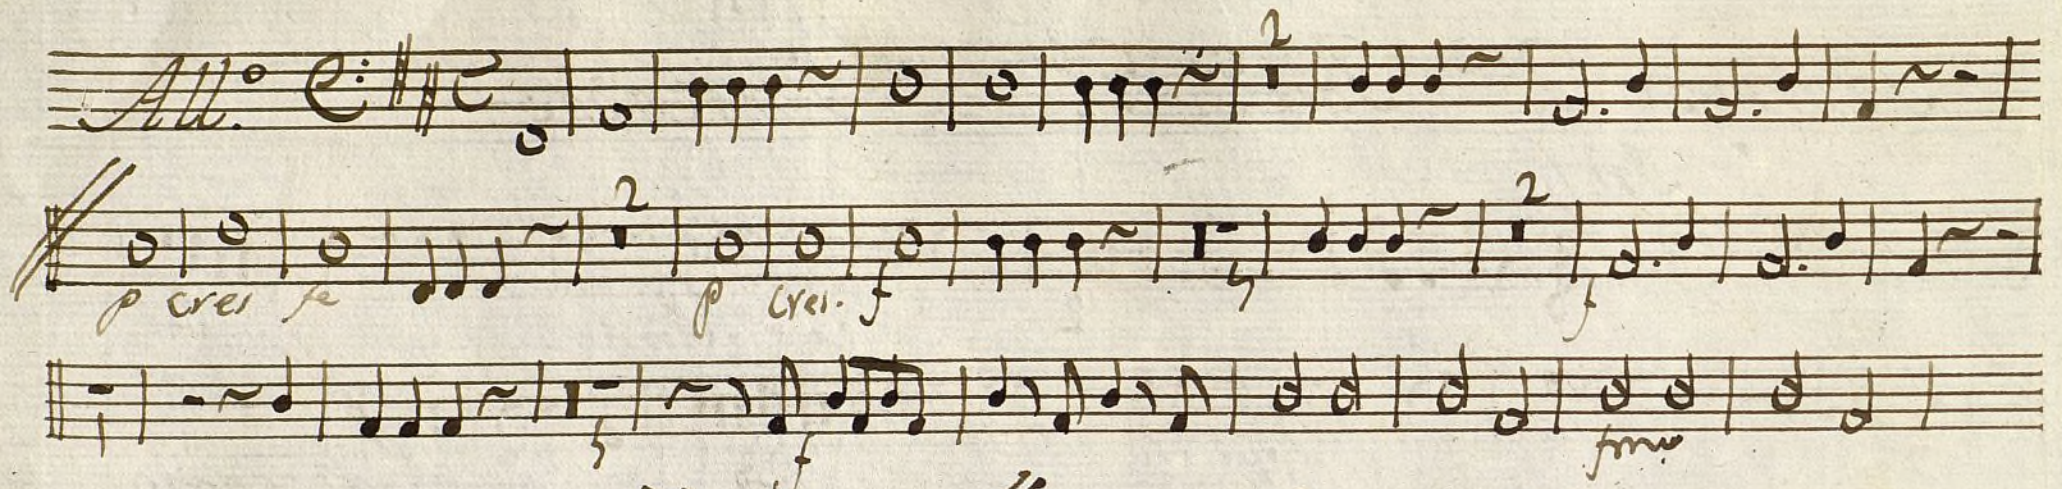 2
All.o
2 2
p cres fe p cres. f 5 f
5 f fmo